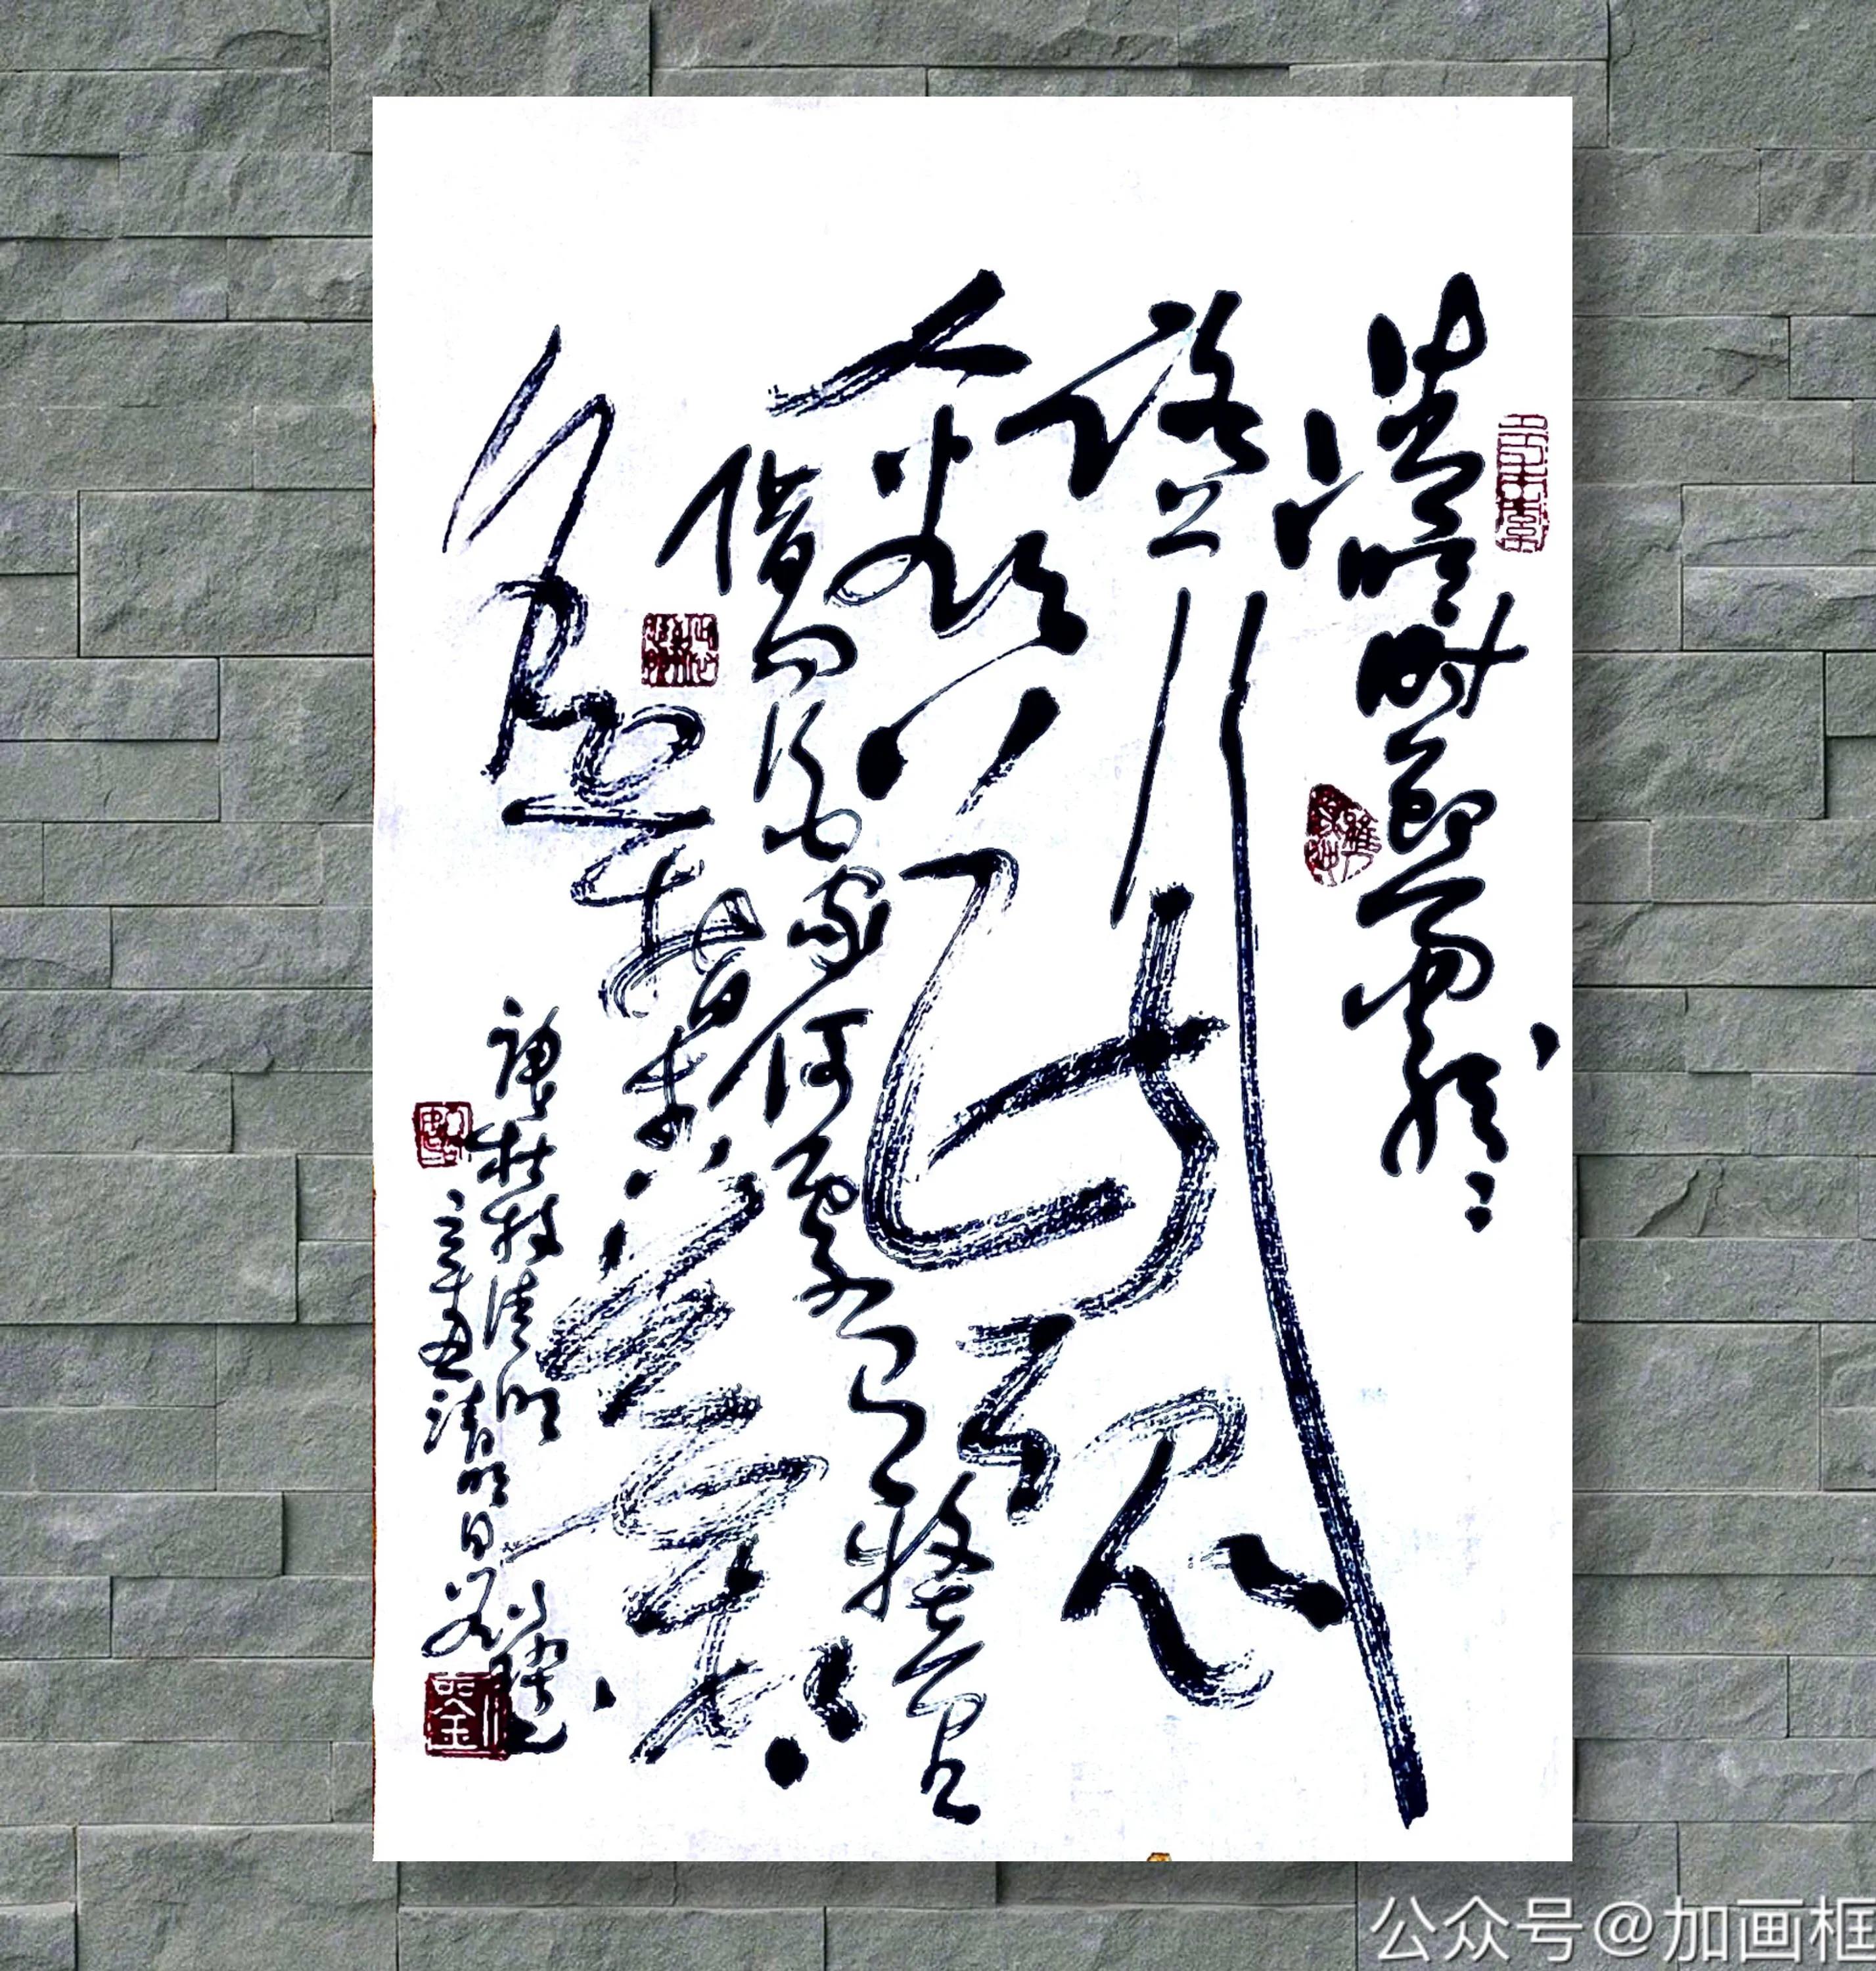 清明时节雨纷纷
路上行
人欲断魂
借问酒家何处有牧童
遥指杏花村
杜牧清明
辛丑清明日
公众号@加画框